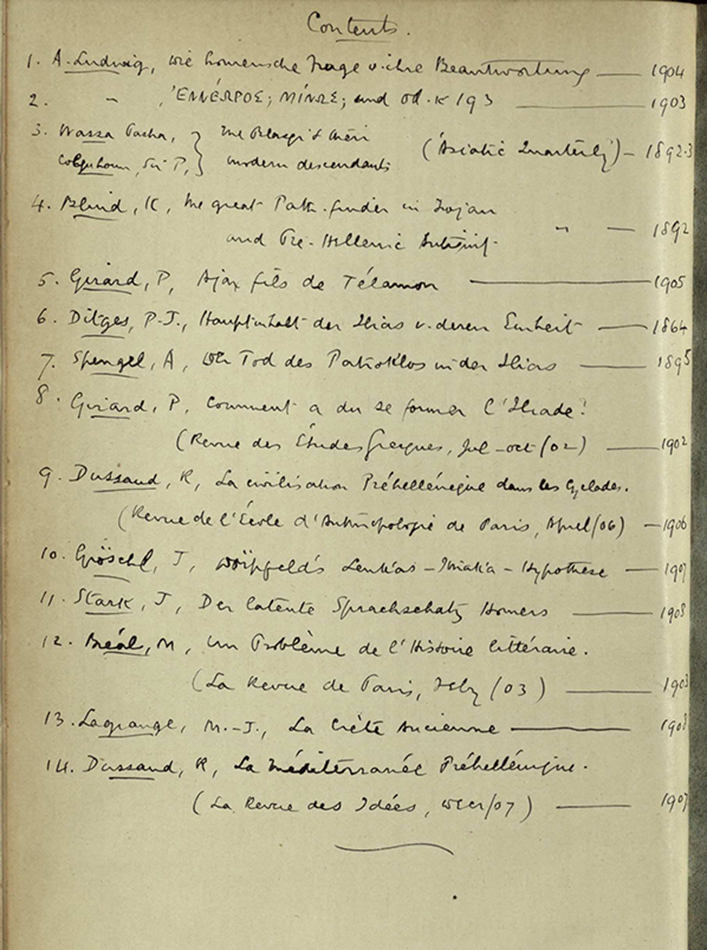 Contents.
1. A. Ludwig, Die homerische Frage u. ihre Beantwortung — 1904
2. " , ἘΝΝΈΩΡΟΣ; ΜΊΝΩΣ; und Od. κ 193 — 1903
3. Wassa Pasha, } The Pelasgi & their
Colquhoun, Sir P, } modern descendants (Asiatic Quarterly) — 1892-3
4. Blind, K, The great Path-finder in Trojan
and Pre-Hellenic " — 1892
5. Girard, P, Ajax fils de Télamon — 1905
6. Ditges, P-J., Hauptinhalt der Ilias u. deren Einheit — 1864
7. Spengel, A, Der Tod des Patroklos in der Ilias — 1895
8. Girard, P, Comment a du se former l'Iliade!
(Revue des Études grecques, Jul-Oct/02) — 1902
9. Dussaud, R, La civilisation Préhellénique dans les Cyclades.
(Revue de l'École d'Anthropologie de Paris, April/06) — 1906
10. Gröschl, J, Dörpfeld's Leukas-Ithaka-Hypothese — 1907
11. Stark, J, Der latente Sprachschatz Homers — 1908
12. Bréal, M, Un Problème de l'Histoire littéraire.
(La Revue de Paris, Feby/03) — 1903
13. Lagrange, M.-J., La Crète Ancienne — 1908
14. Dussaud, R, La Méditerranée Préhellénique.
(La Revue des Idées, Decr/07) — 1907